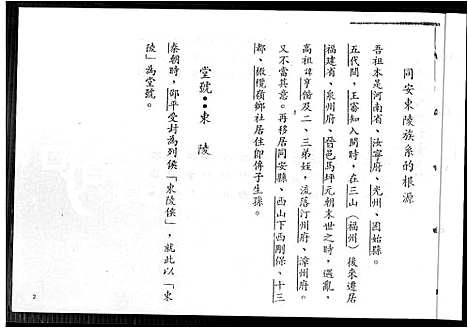 同安東陵族系的根源
吾祖本是河南省、汝寧府、光州、固始縣。
五代間，王審知入閩時，在三山（福州）後來遷居
福建省、泉州府、晉邑馬坪元朝末世之時，遇亂，
高祖諱亨皆及二、三弟姪，流落汀州府、漳州府。
又不當其意。再移居同安縣、西山下西剛保、十三
都、橄欖嶺鄉社居住即傳子生孫。
堂號：東陵
秦朝時，邵平受封為列侯「東陵侯」，就此以「東
陵」為堂號。
2